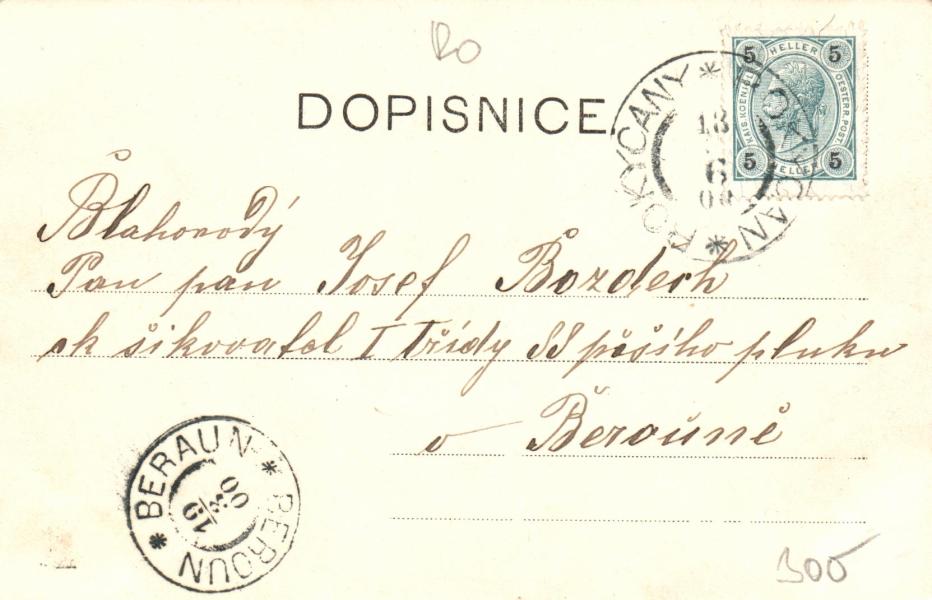 Ro
DOPISNICE
5 HELLER 5
KAIS. KOENIGL. OESTERR. POST
5 HELLER 5
* ROKYCANY *
18
6
00
Blahorodý
Pan pan Josef Bozdech
ck šikovatel I třídy 88 pěšího pluku
v Berouně
* BERAUN * BEROUN
19
00
300